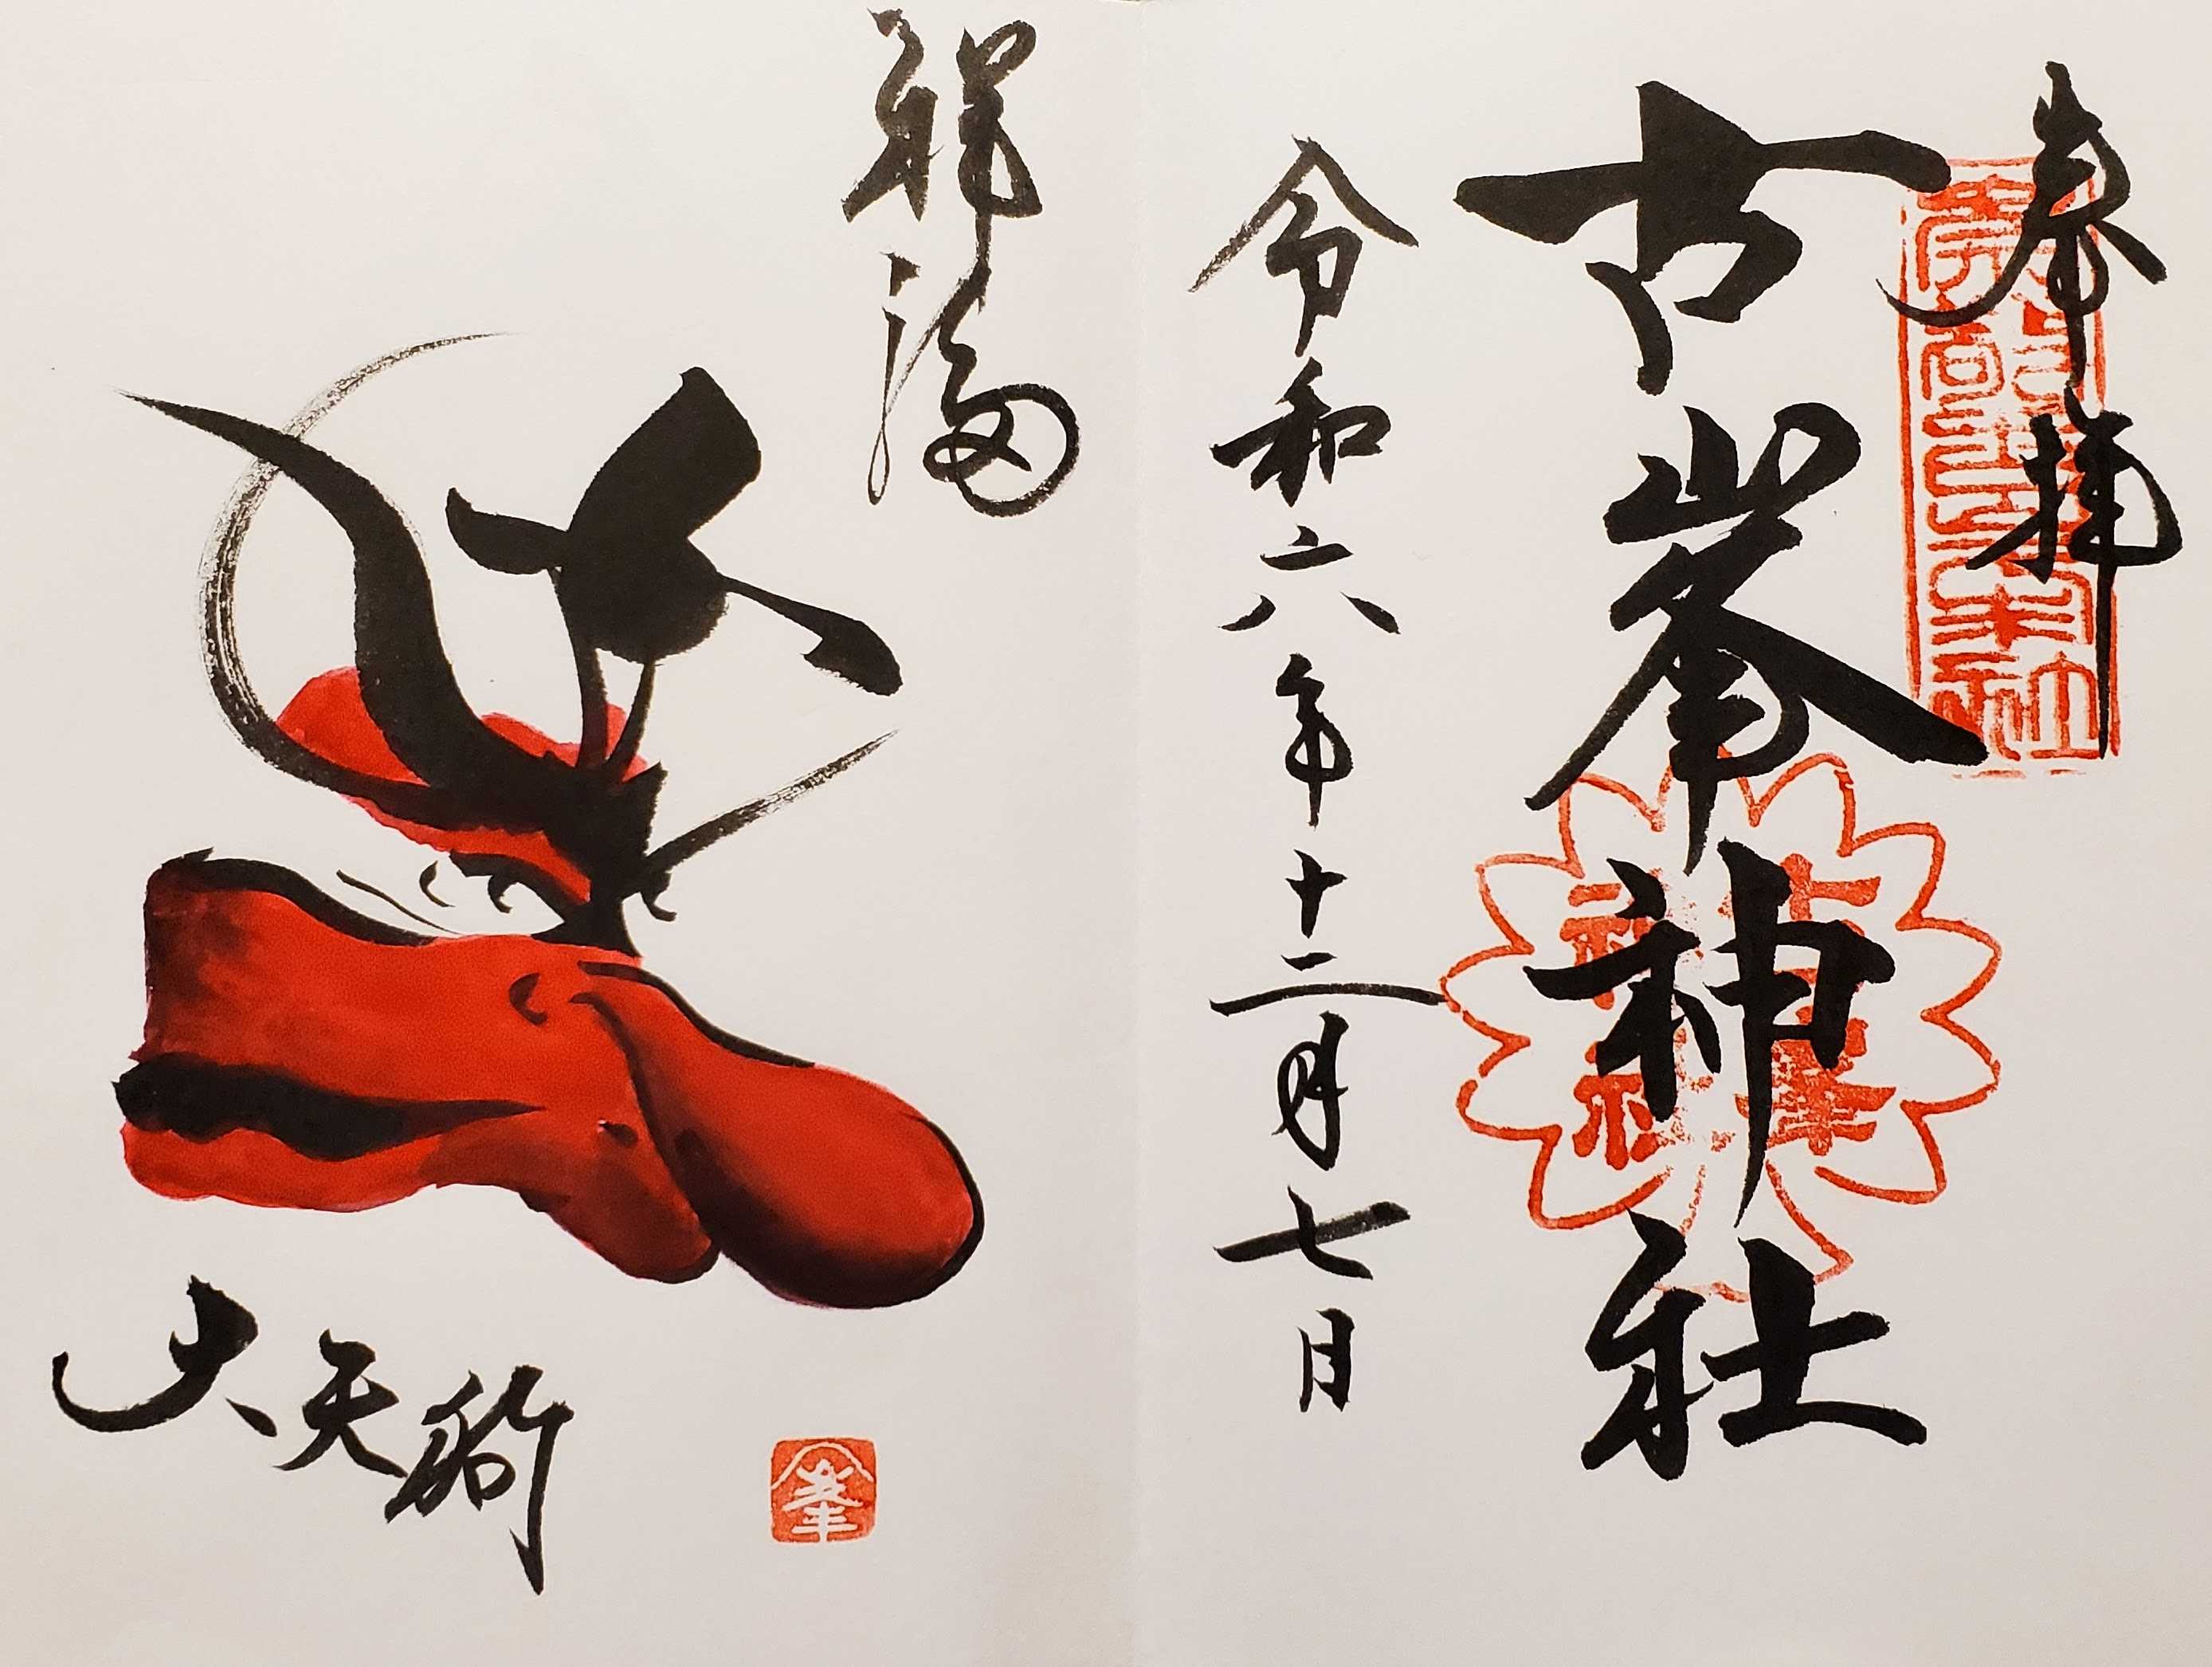 奉拝
古峯神社
令和六年十二月七日
古峯神社
祥福
大天狗
峯